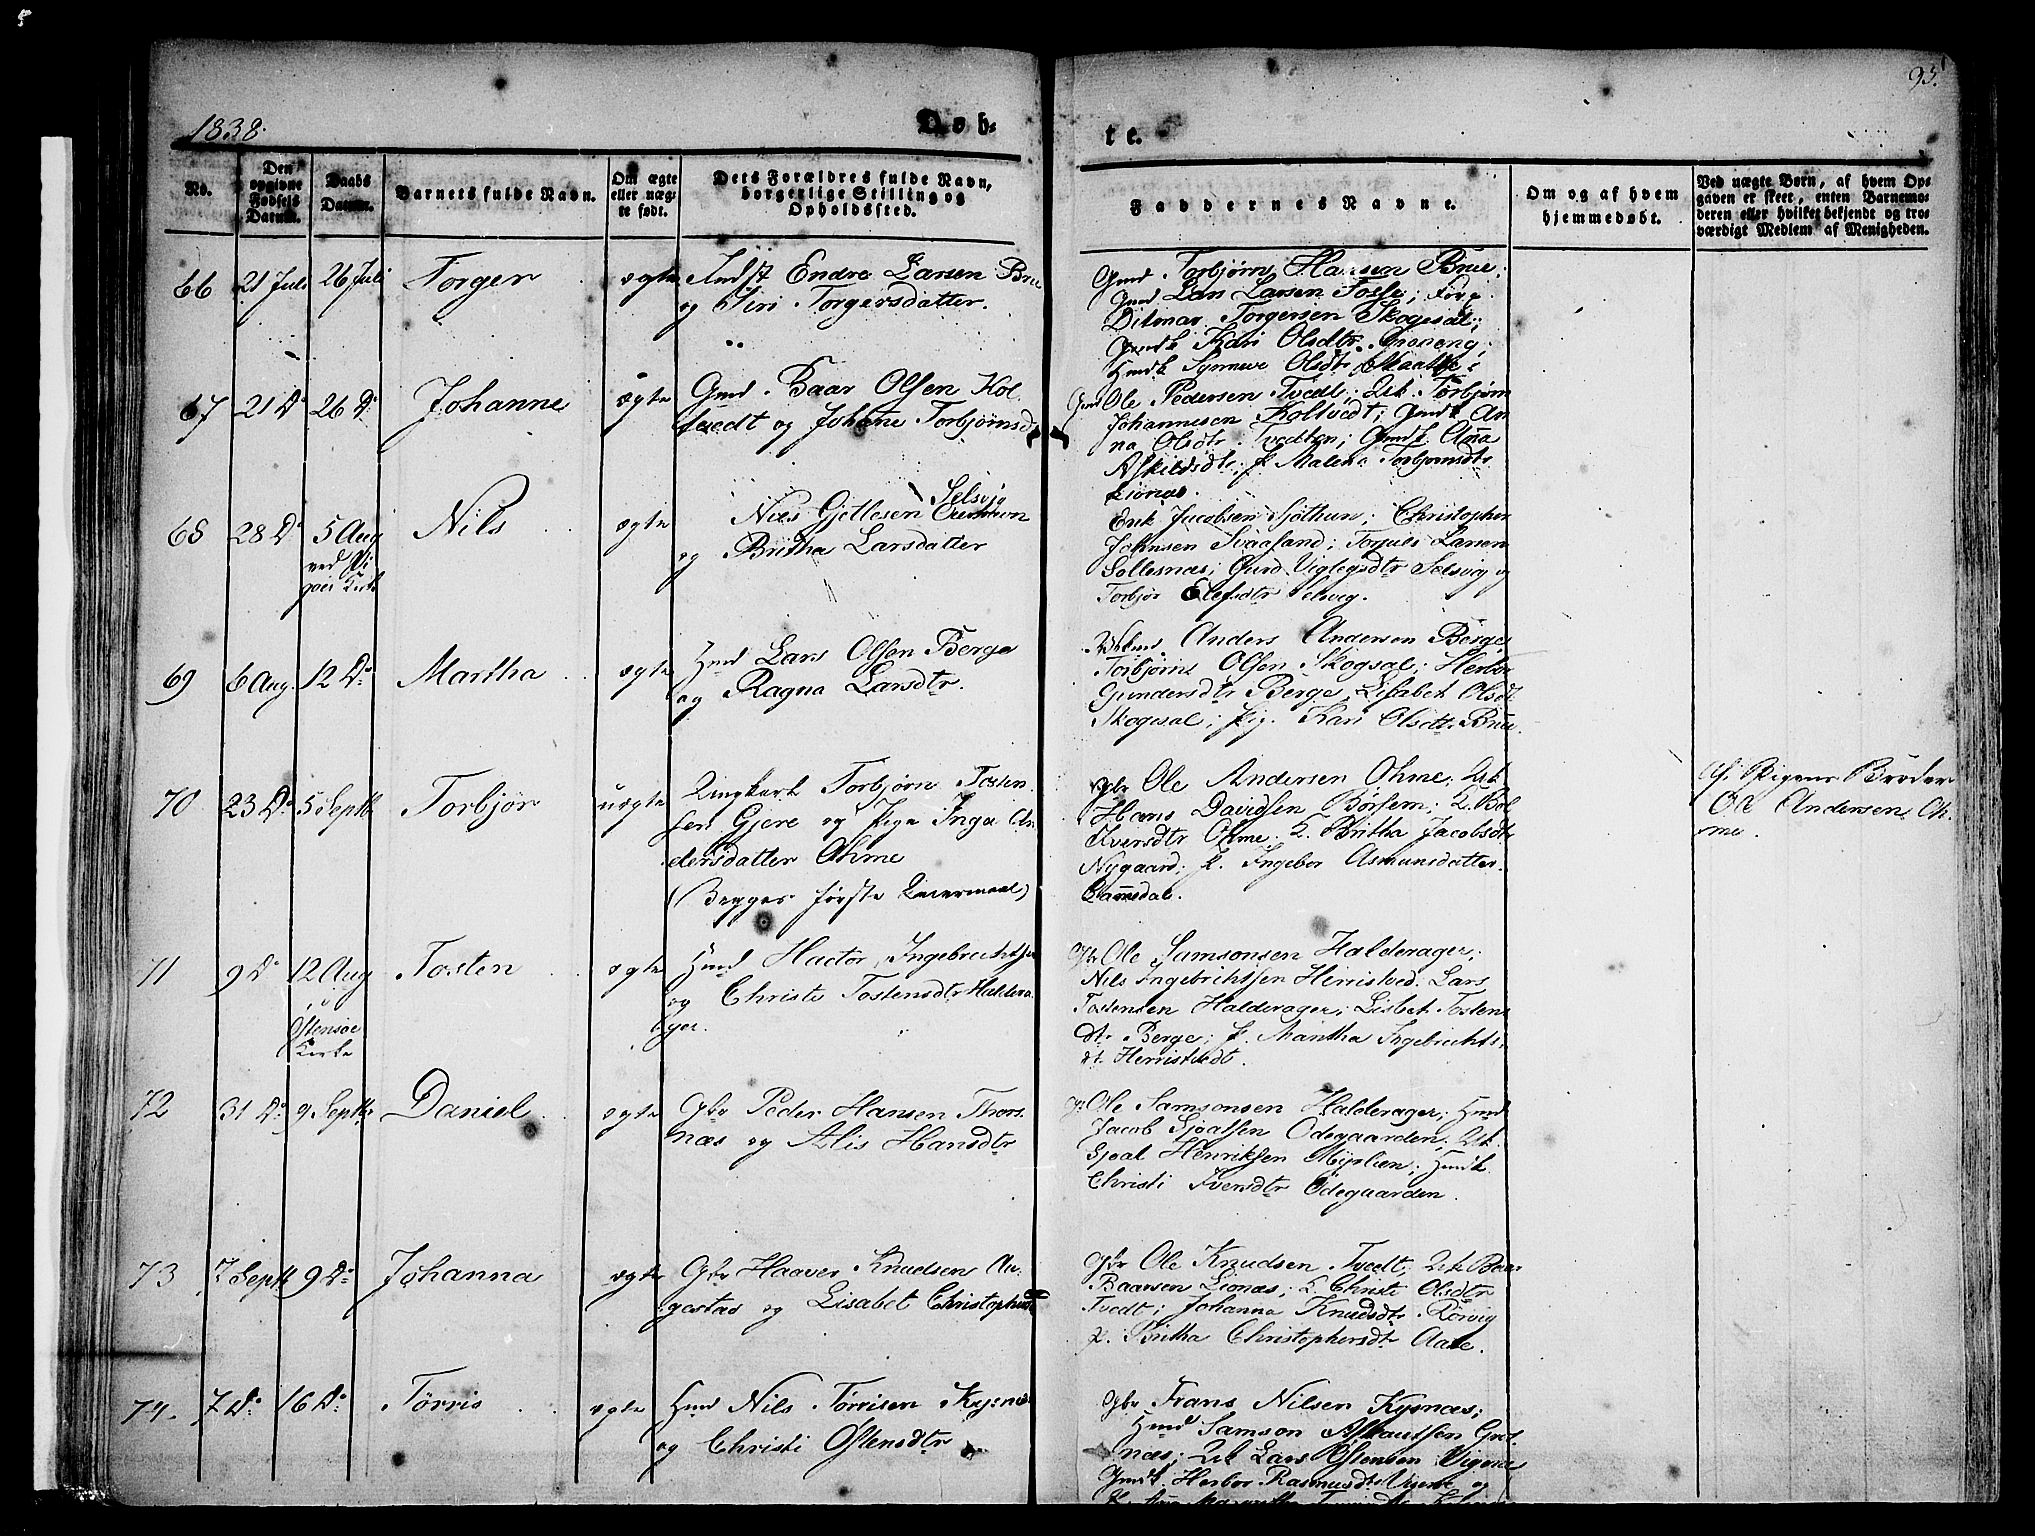 93.
1838.
Døb-
te.
No.
Den opgivne Fødsels Datum.
Daabs Datum.
Barnets fulde Navn.
Om ægte eller uægte født.
Dets Forældres fulde Navn, borgerlige Stilling og Opholdssted.
Faddernes Navne.
Om og af hvem hjemmedøbt.
Ved uægte Børn, af hvem Opgaven er skeet, enten Barnemoderen eller hvilket bekjendt og troværdigt Medlem af Menigheden.
66 21 Juli 26 Juli Torger ægte Indst Endre Larsen Brue
og Siri Torgersdatter.
Gmd. Torbjørn Hansen Brue;
Gmd Lars Larsen Fosse;
Ditmar Torgersen Skogesal;
Gmdk Kari Olsdtr
Hmdk Synneve Olsdtr
67 21 Do 26 Do Johanne ægte Gmd. Baar Olsen Kol
tvedt og Johane Torbjørnsd
Gmd Ole Pedersen Tvedt; Uk Torbjørn
Johannesen Koltvedt; Gmdk An
na Olsdtr. Tvedten; Gmdk Ana
Askildsdtr; P Malena Torbjørnsdtr
Lionæs.
68 28 Do 5 Aug Nils ægte Niels Gjetlesen Selsvig
ved Vi
og Britha Larsdatter
Kirke
Erik Jacobsen Sjøthun; Christopher
Johnsen Svaasand; Torjuls Larsen
Sollesnæs; Gurd. Viglegsdtr Selsvig og
Torbjør Elefsdtr Selsvig.
69 6 Aug. 12 Do Martha ægte Hmd Lars Olsen Berge
og Ragna Larsdtr.
Anders Andersen Berge
Torbjørn Olsen Skogsal; Herbor
Gundersdtr Berge, Lisabet Olsdt
Skogesal; Pig. Kari Olsdtr. Brue.
70 23 Do 5 Septbr Torbjør uægte Ungkarl Torbjørn Tosten
sen Gjere og Pige Inga An
dersdatter Ohme
(Begges første Leiermaal)
Gbr Ole Andersen Ohme; Uk
Hans Davidsen Børsem;
Iversdtr Ohme. Britha Jacobsdtr
Nygaard; P. Ingebor Asmunsdatter
Lamsdal.
Af Pigens Broder
Ole Andersen Oh
me.
71 9 Do 12 Aug Tosten ægte Hmd Hactor Ingebrichtsen
i
Ostensøe
Kirke
og Christi Tostensdtr Haldera
ger.
Gbr Ole Samsonsen Halderager;
Nils Ingebrichtsen Herristved. Lars
Tostensen Halderager; Lisbet Tostens
dtr Berge; P. Martha Ingebrichts
dt. Herristvedt.
72 31 Do 9 Septbr Daniel ægte Gbr Peder Hansen Thors
næs og Alis Hansdtr
Gbr Ole Samsonsen Halderager; Hmd
Jacob Sjoatsen Ødegaarden; Uk.
Sjoal Henriksen Myklien; Hmdk
Christi Iversdtr Ødegaarden.
73 7 Septbr 9 Do Johanna ægte Gbr Haaver Knudsen Au-
gestad og Lisabet Christophersdtr
Gbr Ole Knudsen Tvedt; Uk Baar
Baarsen Lionæs; Christi Olsdtr
Tvedt; Johanna Knudsdtr Rørvig
P. Britha Christophersdtr Aase.
74. 7 Do 16 Do Tørris ægte Hmd Nils Tørrisen Kysnæs
og Christi Ostensdtr
Gbr Frans Nilsen Kysnæs;
Hmd Samson Aslautsen Gret-
næs; Uk Lars Ostensen Vigene
Gmdk. Herbor Rasmusdtr Vigene og